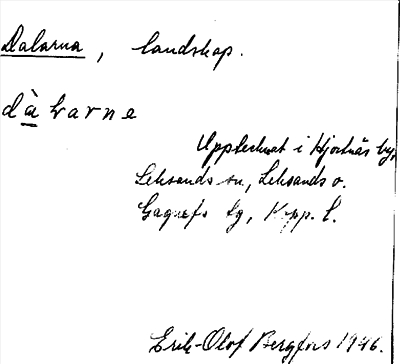 Dalarna, landskap.
dàkarne
Upptecknat i Hjortnäs by,
Leksands sn, Leksands o.
Gagnefs tg, Kopp. l.
Erik-Olof Bergfors 1946.